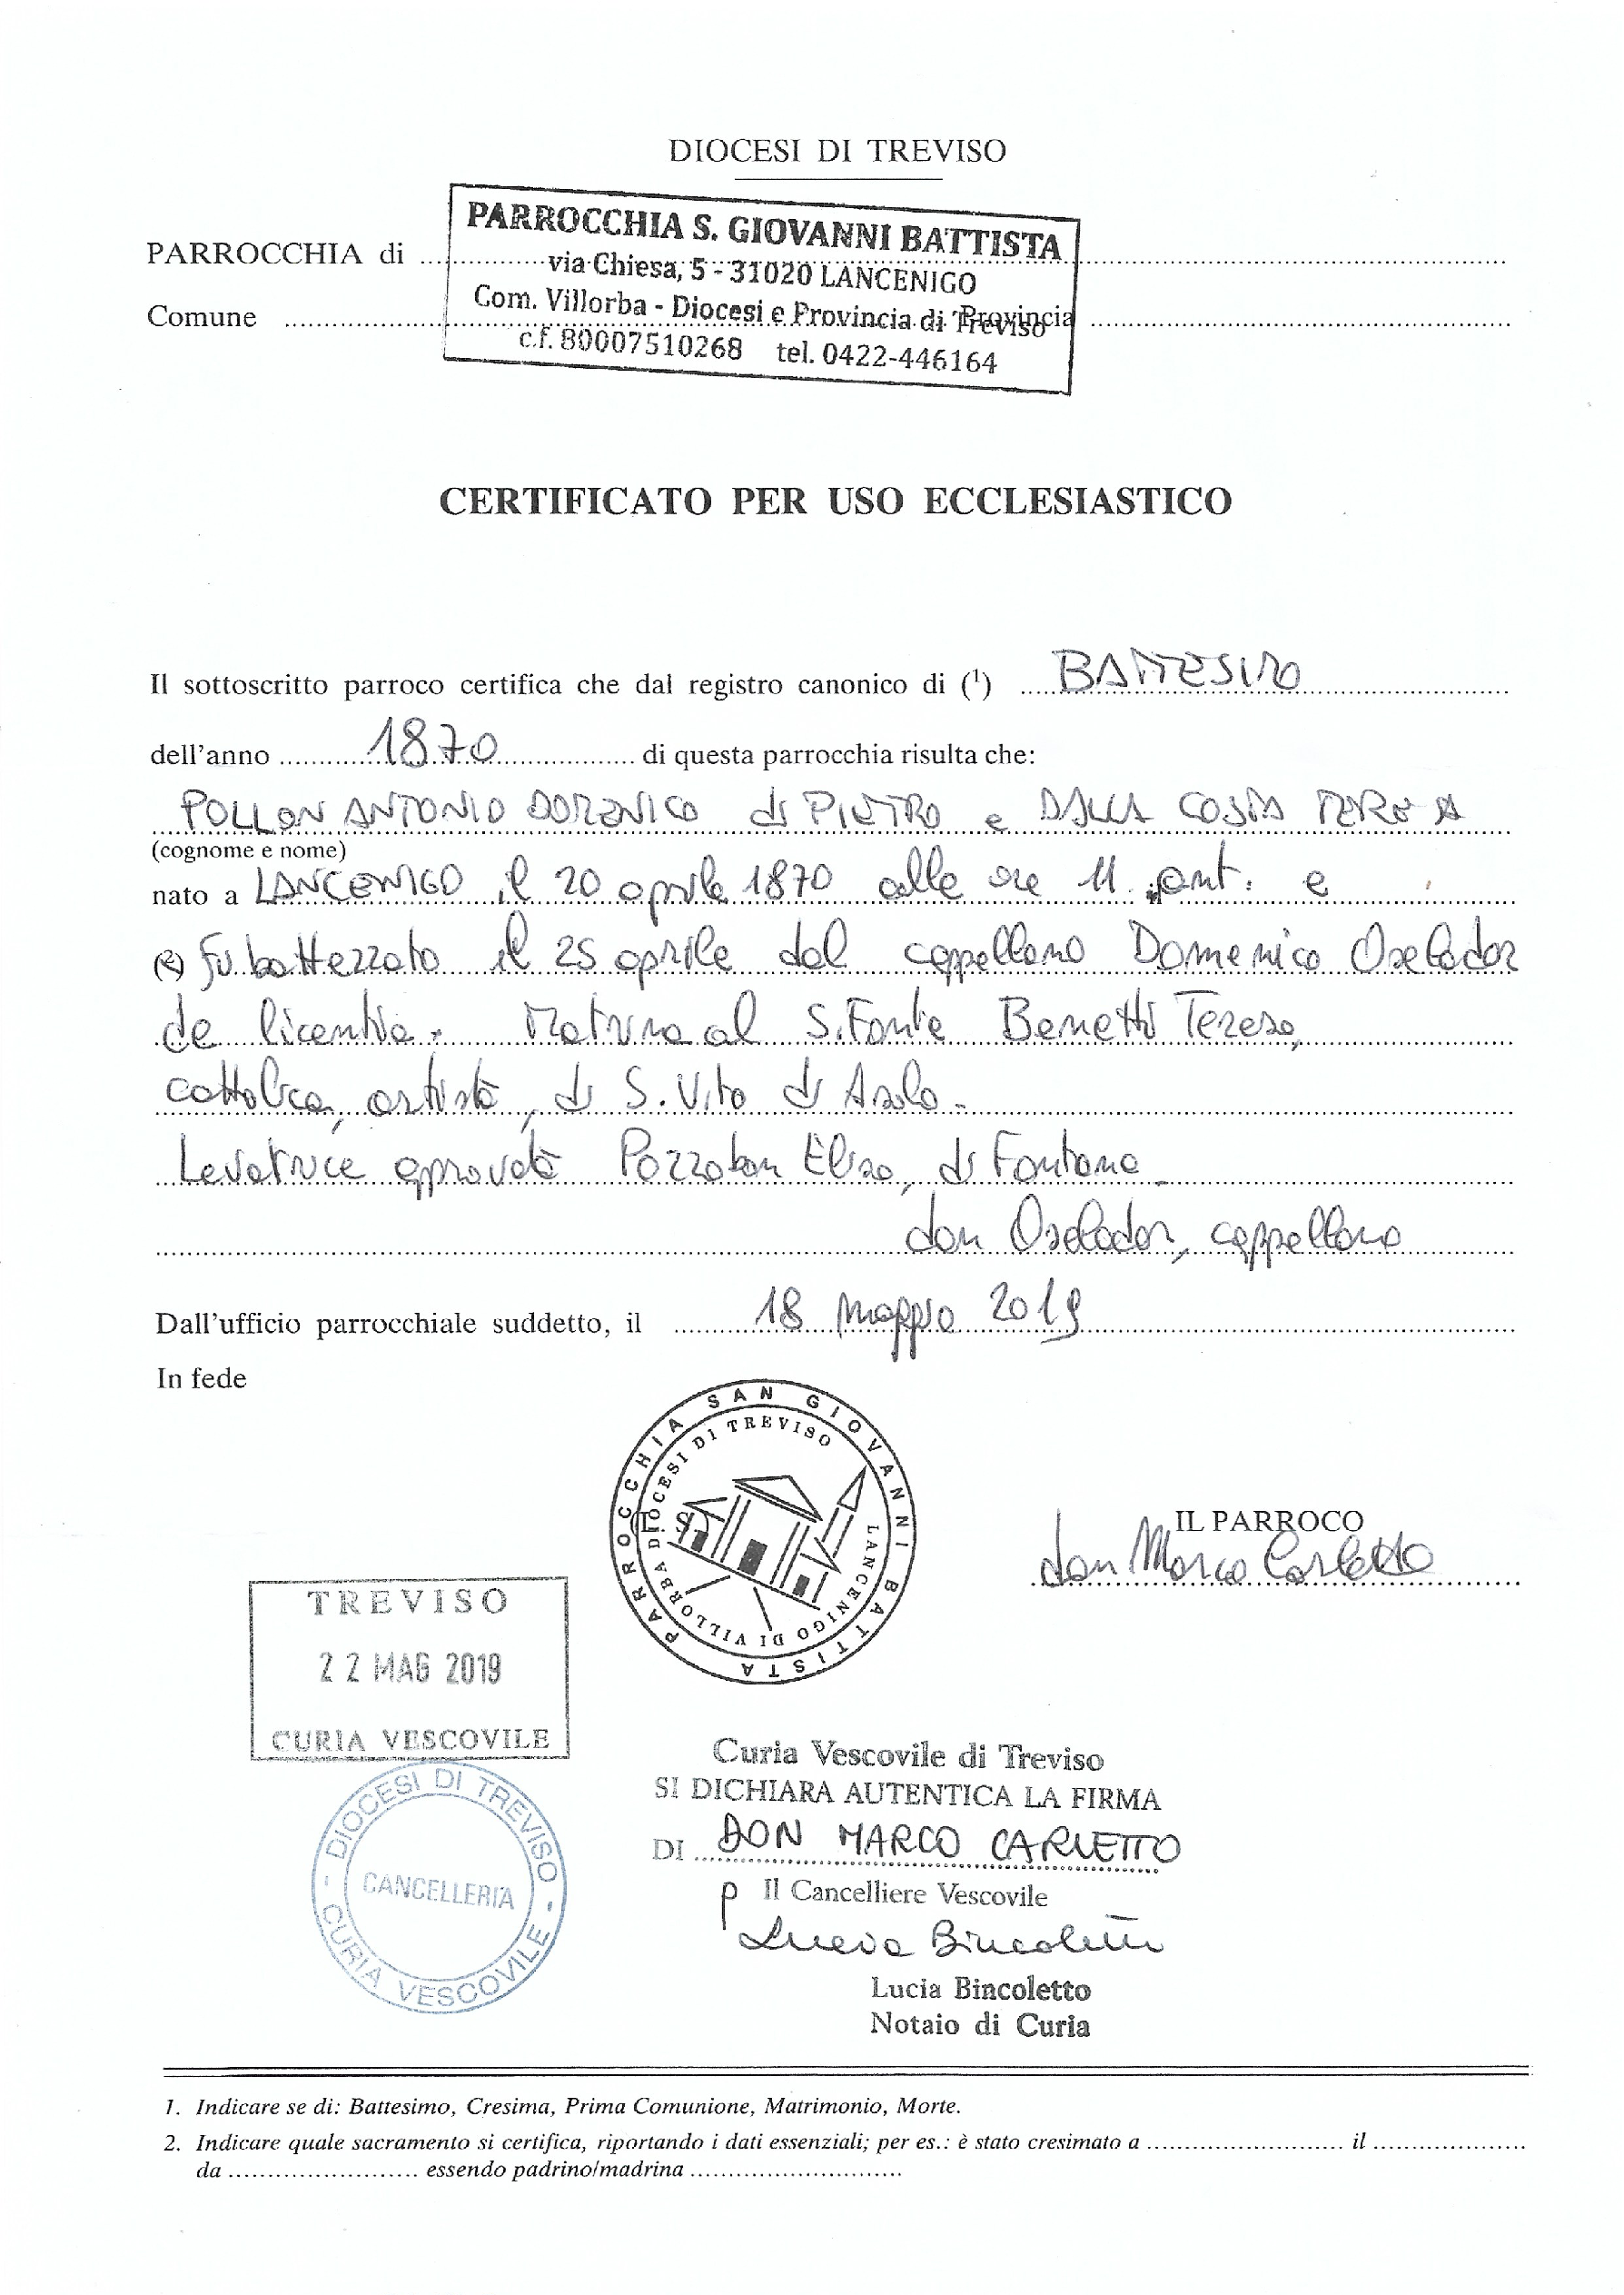 DIOCESI DI TREVISO
PARROCCHIA S. GIOVANNI BATTISTA
PARROCCHIA di
via Chiesa, 5 - 31020 LANCENIGO
Com. Villorba - Diocesi e Provincia di Treviso
Comune Provincia
c.f. 80007510268 tel. 0422-446164
CERTIFICATO PER USO ECCLESIASTICO
Il sottoscritto parroco certifica che dal registro canonico di (1) BATTESIMO
dell'anno 1870 di questa parrocchia risulta che:
POLLON ANTONIO DOMENICO di PIETRO e DALLA COSTA TERESA
(cognome e nome)
nato a LANCENIGO il 20 aprile 1870 alle ore 11 ant. e
(2) fu battezzato il 25 aprile dal cappellano Domenico Oselador
de licentia. Matrina al S. Fonte Benetti Teresa,
cattolica, artista, di S. Vito di Asolo.
Levatrice aprovata Pozzobon Elisa, di Fontane.
don Oselador, cappellano
Dall'ufficio parrocchiale suddetto, il 18 maggio 2019
In fede
PARROCCHIA SAN GIOVANNI BATTISTA
DIOCESI DI TREVISO
LANCENIGO DI VILLORBA
IL PARROCO
don Marco Carletto
TREVISO
22 MAG 2019
CURIA VESCOVILE
DIOCESI DI TREVISO
CANCELLERIA
CURIA VESCOVILE
Curia Vescovile di Treviso
SI DICHIARA AUTENTICA LA FIRMA
DI DON MARCO CARLETTO
p Il Cancelliere Vescovile
Lucia Bincoletto
Lucia Bincoletto
Notaio di Curia
1. Indicare se di: Battesimo, Cresima, Prima Comunione, Matrimonio, Morte.
2. Indicare quale sacramento si certifica, riportando i dati essenziali; per es.: è stato cresimato a il
da essendo padrino/madrina